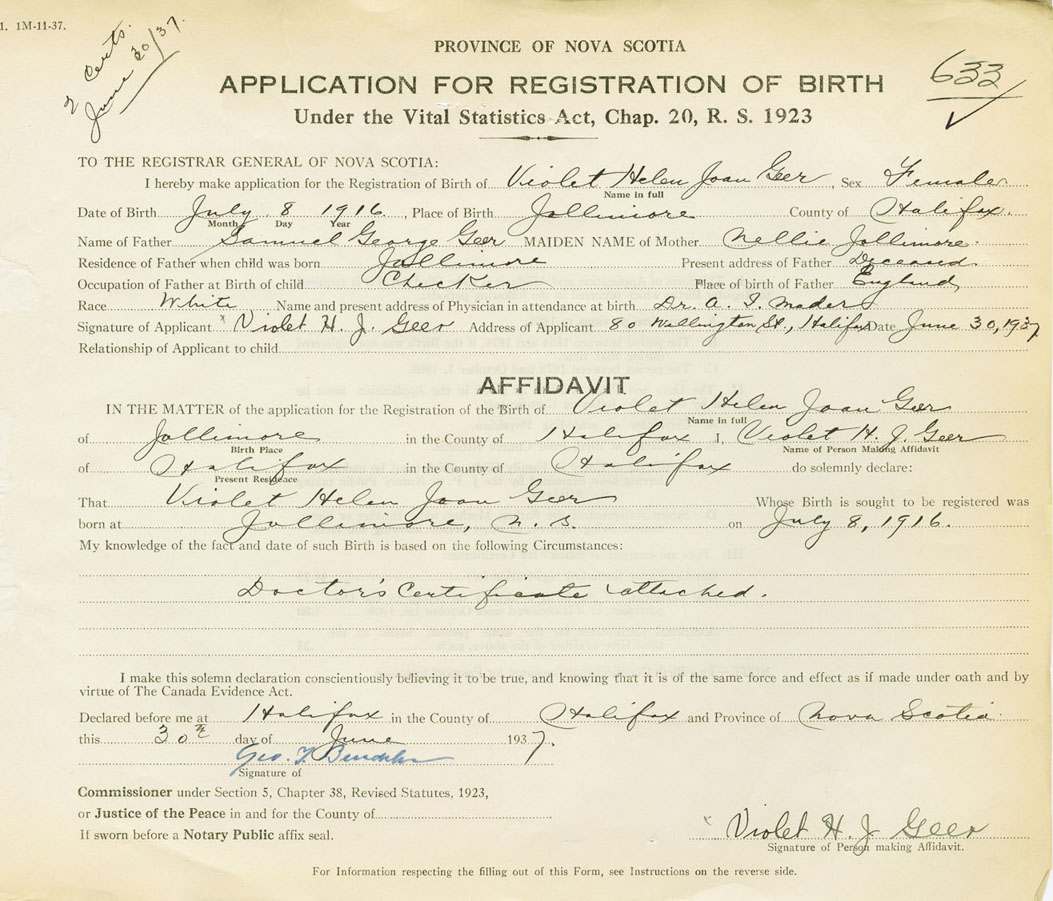 1. 1M-11-37.
2 Certs.
June 30/37.
633
PROVINCE OF NOVA SCOTIA
APPLICATION FOR REGISTRATION OF BIRTH
Under the Vital Statistics Act, Chap. 20, R. S. 1923
TO THE REGISTRAR GENERAL OF NOVA SCOTIA:
I hereby make application for the Registration of Birth of Violet Helen Joan Geer, Sex Female
Name in full
Date of Birth July 8 1916, Place of Birth Jollimore County of Halifax.
Month Day Year
Name of Father Samuel George Geer MAIDEN NAME of Mother Nellie Jollimore.
Residence of Father when child was born Jollimore Present address of Father Deceased
Occupation of Father at Birth of child Checker Place of birth of Father England
Race White Name and present address of Physician in attendance at birth Dr. A. I. Mader
Signature of Applicant x Violet H. J. Geer Address of Applicant 80 Wellington St., Halifax Date June 30, 1937
Relationship of Applicant to child
AFFIDAVIT
IN THE MATTER of the application for the Registration of the Birth of Violet Helen Joan Geer
Name in full
of Jollimore in the County of Halifax I, Violet H. J. Geer
Birth Place Name of Person Making Affidavit
of Halifax in the County of Halifax do solemnly declare:
Present Residence
That Violet Helen Joan Geer Whose Birth is sought to be registered was
born at Jollimore, N. S. on July 8, 1916.
My knowledge of the fact and date of such Birth is based on the following Circumstances:
Doctor's Certificate attached.
I make this solemn declaration conscientiously believing it to be true, and knowing that it is of the same force and effect as if made under oath and by
virtue of The Canada Evidence Act.
Declared before me at Halifax in the County of Halifax and Province of Nova Scotia.
this 30th day of June 1937.
Geo. T.
Signature of
Commissioner under Section 5, Chapter 38, Revised Statutes, 1923,
or Justice of the Peace in and for the County of
If sworn before a Notary Public affix seal.
x Violet H. J. Geer
Signature of Person making Affidavit.
For Information respecting the filling out of this Form, see Instructions on the reverse side.